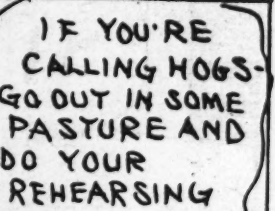 IF YOU'RE
CALLING HOGS-
GO OUT IN SOME
PASTURE AND
DO YOUR
REHEARSING